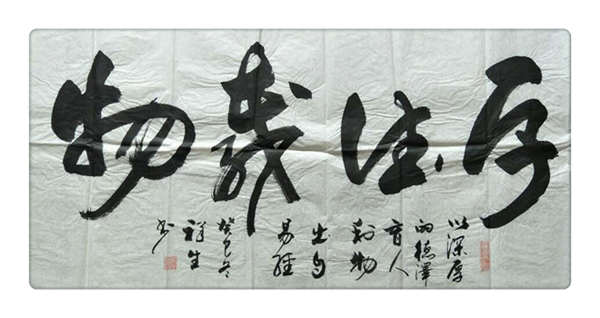 厚德载物
以深厚
的德泽
育人
利物
出自
易经
癸巳冬
祥生
书